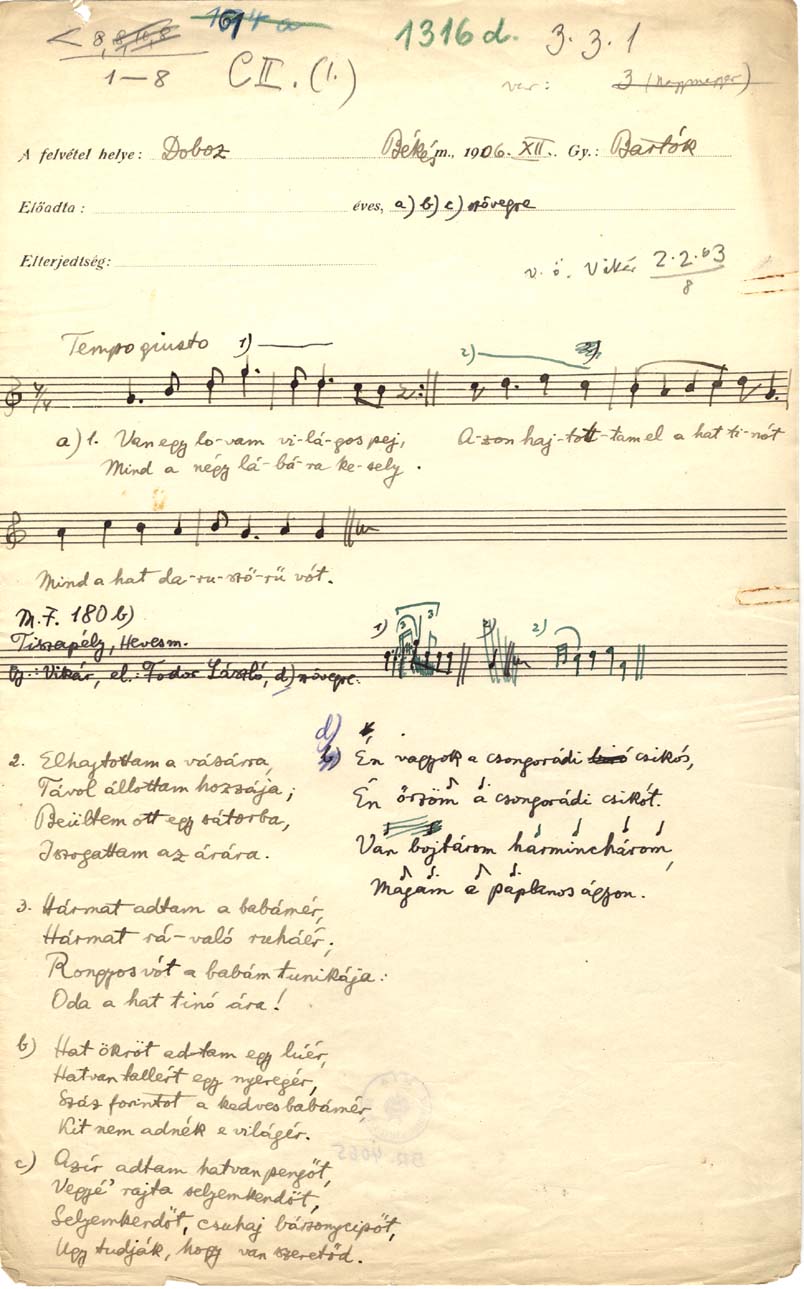 1316 d. 3. 3. 1
1—8 C II. (1.) var:
A felvétel helye: Doboz Békés m., 1906. XII. Gy.: Bartók
Előadta: éves, a) b) c) szövegre
Elterjedtség:
v. ö. Vikár 2.2.63
8
Tempo giusto 1) 2)
a) 1. Van egy lo-vam vi-lá-gos pej, A-zon haj-tot-tam el a hat ti-nót
Mind a négy lá-bá-ra ke-sely.
Mind a hat da-ru-ső-rű vót.
M.F. 180 b)
Tiszapély, Heves m.
Gy.: Vikár, el.: Fodor László, d) szövegre.
1) 2)
2. Elhajtottam a vásárra,
Távol állottam hozzája;
Beültem ott egy sátorba,
Iszogattam az árára.
3. Hármat adtam a babámér,
Hármat rá-való ruháér;
Rongyos vót a babám tunikája:
Oda a hat tinó ára!
b) Hat ökröt ad-tam egy lúér,
Hatvan tallért egy nyeregér,
Száz forintot a kedves babámér,
Kit nem adnék e világér.
c) Azír adtam hatvan pengőt,
Vegyé' rajta selyemkendőt,
Selyemkendőt, csuhaj bársonycipőt,
Ugy tudják, hogy van szeretőd.
d) Én vagyok a csongorádi csikós,
Én őrzöm a csongorádi csikót.
Van bojtárom hárminchárom,
Magam a paplanos ágyon.